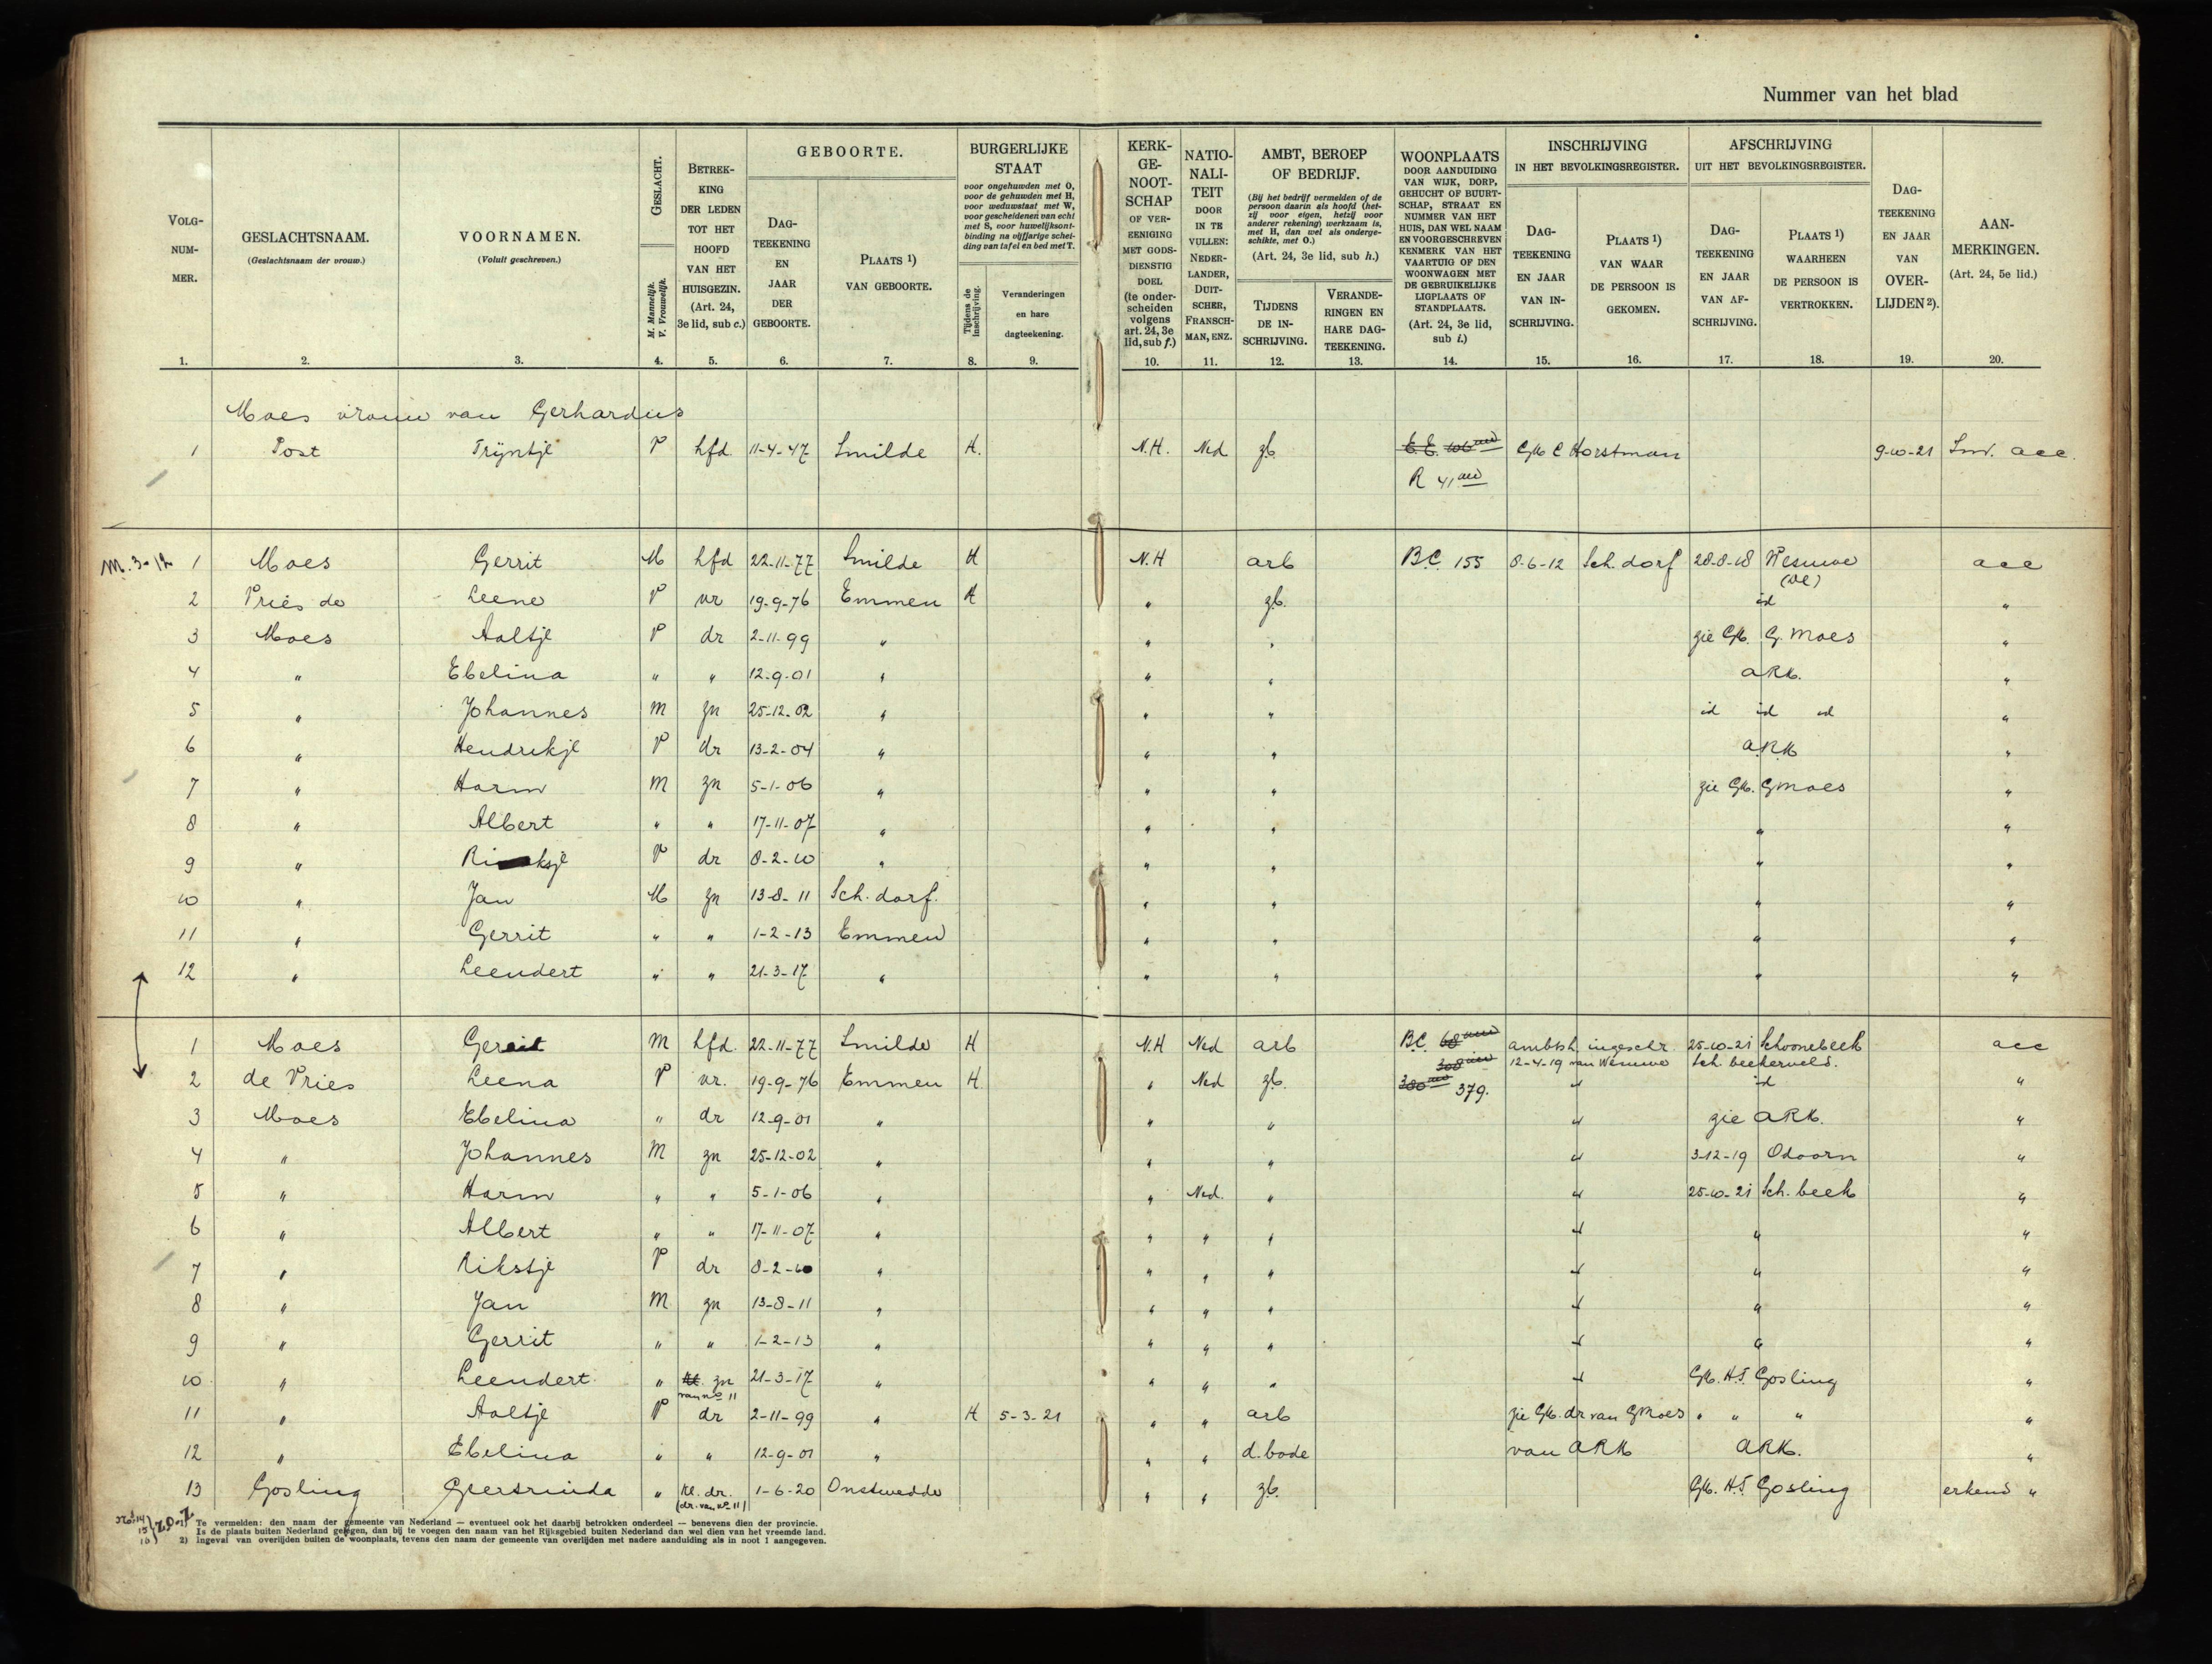 Nummer van het blad
VOLG-NUM-MER. GESLACHTSNAAM. (Geslachtsnaam der vrouw.) VOORNAMEN. (Voluit geschreven.) GESLACHT. M. Mannelijk. V. Vrouwelijk. BETREK-KING DER LEDEN TOT HET HOOFD VAN HET HUISGEZIN. (Art. 24, 3e lid, sub c.)
GEBOORTE. DAG-TEEKENING EN JAAR DER GEBOORTE. PLAATS 1) VAN GEBOORTE.
BURGERLIJKE STAAT
voor ongehuwden met O,
voor de gehuwden met H,
voor weduwstaat met W,
voor gescheidenen van echt
met S, voor huwelijksont-
binding na vijfjarige schei-
ding van tafel en bed met T.
Tijdens de inschrijving. Veranderingen en hare dagteekening.
KERK-GE-NOOT-SCHAP OF VER-EENIGING MET GODS-DIENSTIG DOEL (te onder-scheiden volgens art. 24, 3e lid, sub f.)
NATIO-NALI-TEIT DOOR IN TE VULLEN: NEDER-LANDER, DUIT-SCHER, FRANSCH-MAN, ENZ.
AMBT, BEROEP OF BEDRIJF.
(Bij het bedrijf vermelden of de
persoon daarin als hoofd (het-
zij voor eigen, hetzij voor
anderer rekening) werkzaam is,
met H, dan wel als onderge-
schikte, met O.)
(Art. 24, 3e lid, sub h.)
TIJDENS DE IN-SCHRIJVING. VERANDE-RINGEN EN HARE DAG-TEEKENING.
WOONPLAATS
DOOR AANDUIDING
VAN WIJK, DORP,
GEHUCHT OF BUURT-
SCHAP, STRAAT EN
NUMMER VAN HET
HUIS, DAN WEL NAAM
EN VOORGESCHREVEN
KENMERK VAN HET
VAARTUIG OF DEN
WOONWAGEN MET
DE GEBRUIKELIJKE
LIGPLAATS OF
STANDPLAATS.
(Art. 24, 3e lid, sub i.)
INSCHRIJVING IN HET BEVOLKINGSREGISTER. DAG-TEEKENING EN JAAR VAN IN-SCHRIJVING. PLAATS 1) VAN WAAR DE PERSOON IS GEKOMEN.
AFSCHRIJVING UIT HET BEVOLKINGSREGISTER. DAG-TEEKENING EN JAAR VAN AF-SCHRIJVING. PLAATS 1) WAARHEEN DE PERSOON IS VERTROKKEN.
DAG-TEEKENING EN JAAR VAN OVER-LIJDEN 2). AAN-MERKINGEN. (Art. 24, 5e lid.)
1. 2. 3. 4. 5. 6. 7. 8. 9. 10. 11. 12. 13. 14. 15. 16. 17. 18. 19. 20.
Moes vrouw van Gerhardus
1 Post Trijntje V hfd. 11-4-47 Smilde H. N.H. Ned zb Gk C Horstman 9-10-21 acc.
R 41
M. 3-12 1 Moes Gerrit M hfd 22-11-77 Smilde H N.H arb B.C. 155 8-6-12 Sch. dorf 28-8-18 Wesuwe acc
2 Pries de Leene V vr 19-9-76 Emmen H " zb. id "
3 Moes Aaltje V dr 2-11-99 " " " zie Gk. G. Moes "
4 " Ebelina " " 12-9-01 " " " ARK. "
5 " Johannes M zn 25-12-02 " " " id id id "
6 " Hendrikje V dr 13-2-04 " " " ARK "
7 " Harm M zn 5-1-06 " " " zie Gk. G Moes "
8 " Albert " " 17-11-07 " " " " "
9 " Riksje V dr 8-2-10 " " " " "
10 " Jan M zn 13-8-11 Sch. dorf. " " " "
11 " Gerrit " " 1-2-13 Emmen " " " "
12 " Leendert " " 21-3-17 " " " " "
1 Moes Gerrit M hfd. 22-11-77 Smilde H N.H Ned arb B.C. 68 ambtsh. ingeschr. 25-10-21 Schoonebeek acc
308 12-4-19 van Wesuwe Sch. beekerveld.
2 de Pries Leena V vr. 19-9-76 Emmen H. " Ned zb. 380 379. " id "
3 Moes Ebelina " dr 12-9-01 " " " " zie ARK. "
4 " Johannes M zn 25-12-02 " " " " 3-12-19 Odoorn "
5 " Harm " " 5-1-06 " " Ned. " " 25-10-21 Sch. beek "
6 " Albert " " 17-11-07 " " " " " " "
7 " Rikstje V dr 8-2-10 " " " " " " "
8 " Jan M zn 13-8-11 " " " " " " "
9 " Gerrit " " 1-2-13 " " " " " " "
10 " Leendert " zn 21-3-17 " " " " " Gk. H.J. Gosling "
van no 11
11 " Aaltje V dr 2-11-99 " H 5-3-21 " " arb zie Gk. dr van G Moes " " " "
12 " Ebelina " " 12-9-01 " " " d. bode van ARK ARK. "
13 Gosling Geersrinda " Kl. dr. 1-6-20 Onstwedde " " zb. Gk. H.J. Gosling erkend "
(dr. van no 11)
1) Te vermelden: den naam der gemeente van Nederland — eventueel ook het daarbij betrokken onderdeel — benevens dien der provincie.
Is de plaats buiten Nederland gelegen, dan bij te voegen den naam van het Rijksgebied buiten Nederland dan wel dien van het vreemde land.
2) Ingeval van overlijden buiten de woonplaats, tevens den naam der gemeente van overlijden met nadere aanduiding als in noot 1 aangegeven.